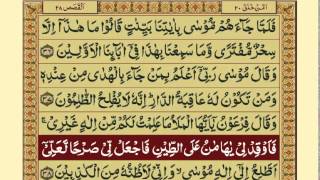 القصص ٢٨
امن خلق ٢٠
فَلَمَّا جَآءَهُمْ مُّوْسٰى بِاٰيٰتِنَا بَيِّنٰتٍ قَالُوْا مَا هٰذَاۤ اِلَّا
سِحْرٌ مُّفْتَرًى وَّمَا سَمِعْنَا بِهٰذَا فِيْۤ اٰبَآىِٕنَا الْاَوَّلِيْنَ
وَقَالَ مُوْسٰى رَبِّيْۤ اَعْلَمُ بِمَنْ جَآءَ بِالْهُدٰى مِنْ عِنْدِهٖ
وَمَنْ تَكُوْنُ لَهٗ عَاقِبَةُ الدَّارِ ؕ اِنَّهٗ لَا يُفْلِحُ الظّٰلِمُوْنَ
وَقَالَ فِرْعَوْنُ يٰۤاَيُّهَا الْمَلَاُ مَا عَلِمْتُ لَكُمْ مِّنْ اِلٰهٍ غَيْرِيْ ۚ
فَاَوْقِدْ لِيْ يٰهَامٰنُ عَلَى الطِّيْنِ فَاجْعَلْ لِّيْ صَرْحًا لَّعَلِّيْۤ
اَطَّلِعُ اِلٰۤى اِلٰهِ مُوْسٰى ۙ وَاِنِّيْ لَاَظُنُّهٗ مِنَ الْكٰذِبِيْنَ